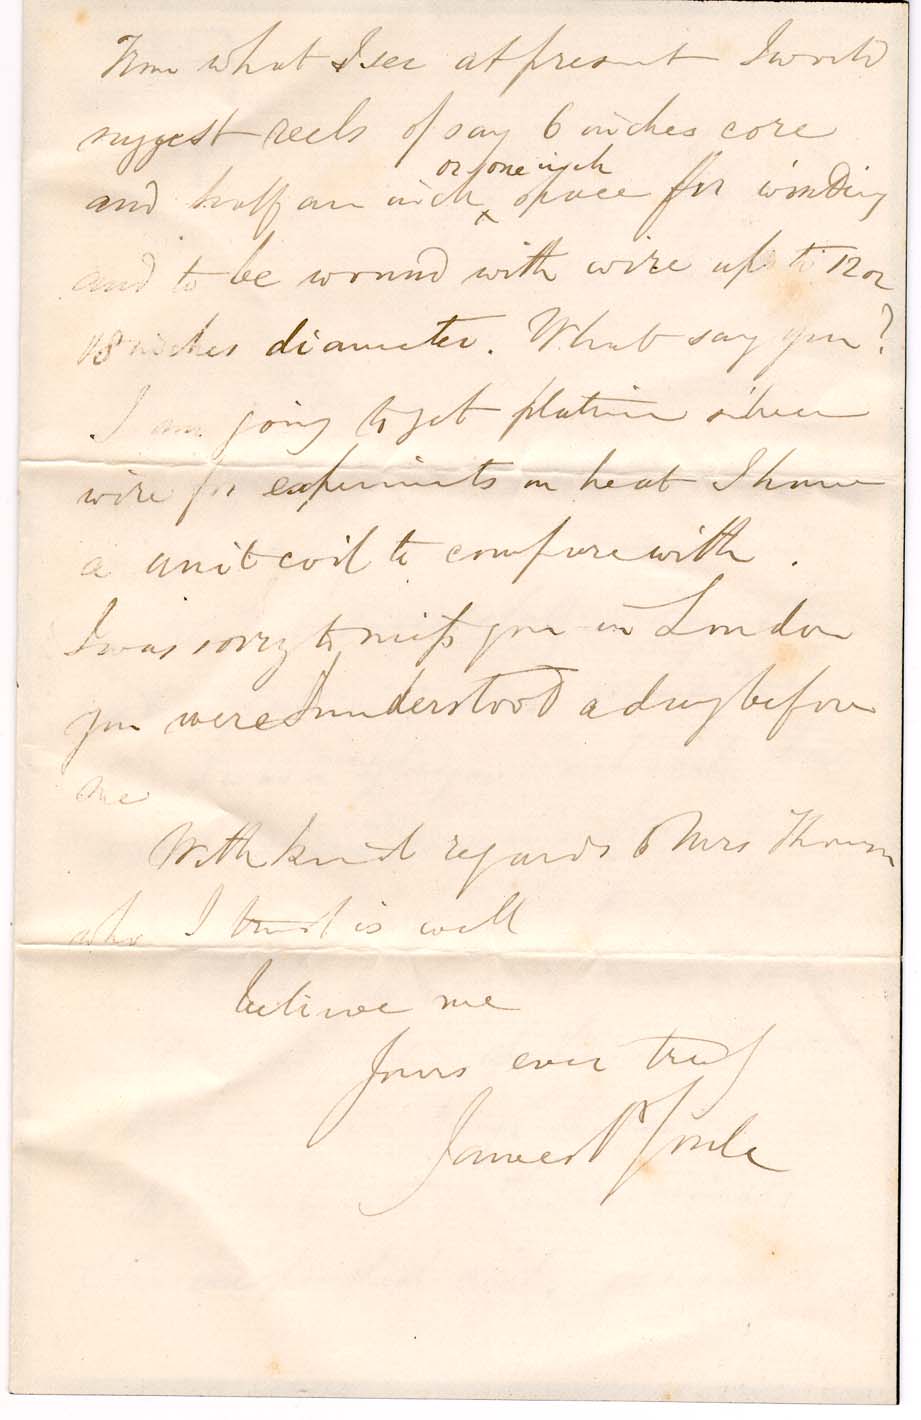 From what I see at present I would
suggest reels of say 6 inches core
or one inch
and half an inch ^ space for winding
and to be wound with wire up to 12 or
18 inches diameter. What say you?
I am going to get platina silver
wire for experiments on heat I have
a unit coil to compare with .
I was sorry to miss you in London
you were I understood a day before
me
With kind regards to Mrs Thomson
who I trust is well
believe me
Yours ever truly
James P Joule